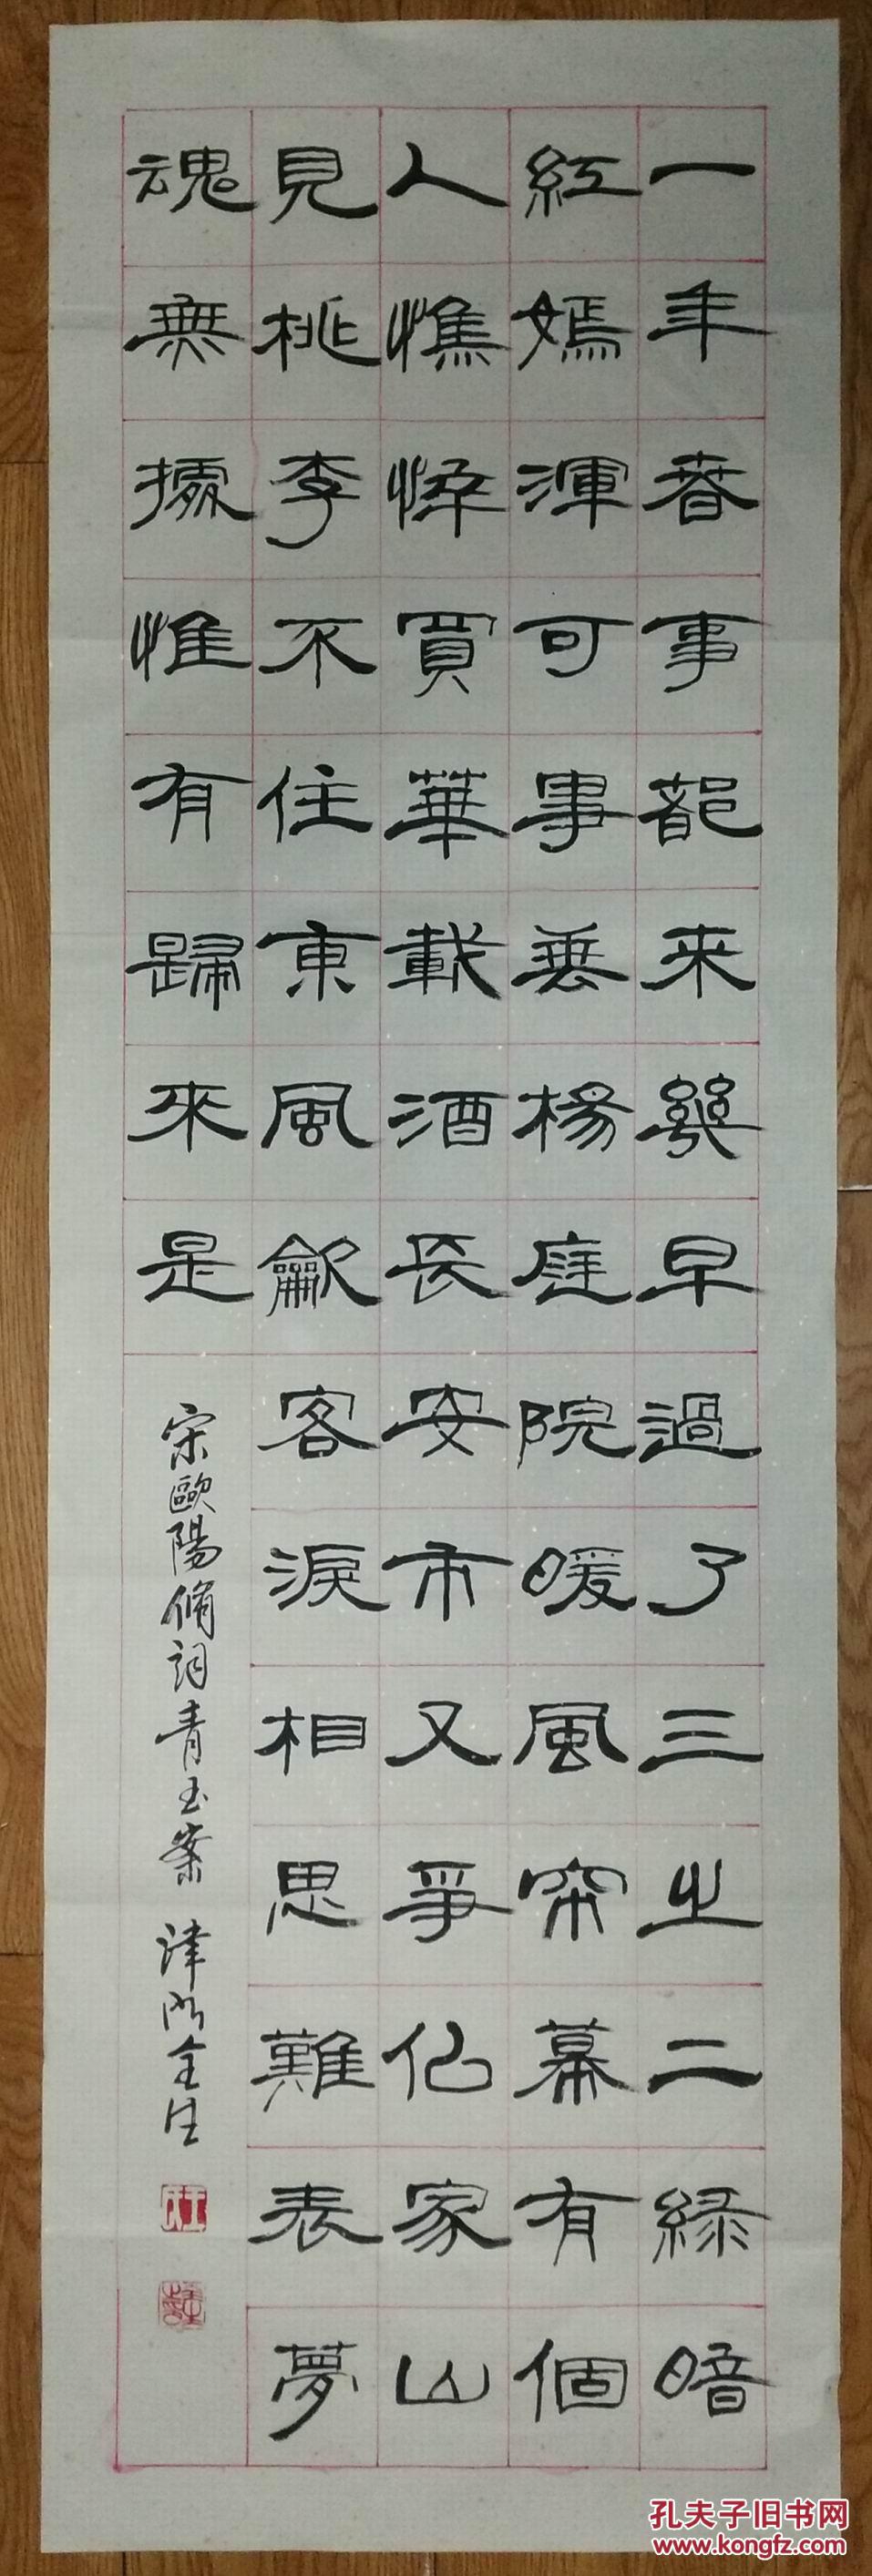 一年春事都来幾早過了三之二緑暗
紅嫣渾可事垂楊庭院暖風帘幕有個
人憔悴買華載酒長安市又爭似家山
見桃李不住東風龡客淚相思難表夢
魂無據惟有歸來是
宋歐陽脩詞青玉案 津
孔夫子旧书网
www.kongfz.com